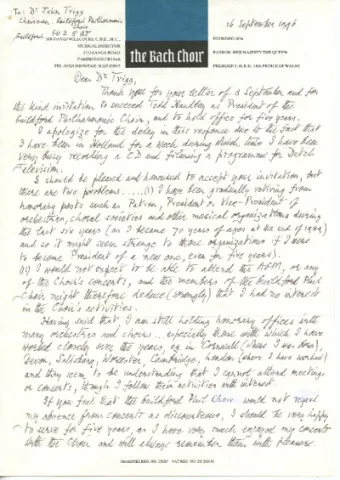 To: Dr John Trigg
Chairman, Guildford Philharmonic
Choir
Guildford GU2 5UZ
16 September 1996
SIR DAVID WILLCOCKS, C.B.E., M.C.,
MUSICAL DIRECTOR,
CAMBRIDGE
the Bach Choir
PATRON: HER MAJESTY THE QUEEN
PRESIDENT: H.R.H. THE PRINCE OF WALES
Dear Dr Trigg,
Thank you for your letter of 3 September and for
the kind invitation to succeed Todd Handley as President of the
Guildford Philharmonic Choir, and to hold office for five years.
I apologize for the delay in this response due to the fact that
I have been in Holland for a week during which time I have been
very busy recording a CD and filming a programme for Dutch
Television.
I should be pleased and honoured to accept your invitation, but
there are two problems.....(i) I have been gradually retiring from
honorary posts such as Patron, President or Vice-President of
orchestras, choral societies and other musical organizations during
the last six years (as I became 70 years of age at the end of 1989)
and so it might seem strange to those organizations if I were
to become President of a new one, even for five years).
(ii) I would not expect to be able to attend the AGM, or any
of the Choir's concerts, and the members of the Guildford Phil
Choir might therefore deduce (wrongly) that I had no interest
in the Choir's activities.
Having said that, I am still holding honorary offices with
many orchestras and choirs... especially those with which I have
worked closely over the years, eg in Cornwall (where I was born),
Devon, Salisbury, Worcester, Cambridge, London (where I have worked)
and they seem to be understanding that I cannot attend meetings
or concerts, though I follow their activities with interest.
If you feel that the Guildford Phil Choir would not regard
my absence from concerts as discourteous, I should be very happy
to serve for five years, as I have very much enjoyed my concerts
with the Choir and will always remember them with pleasure.